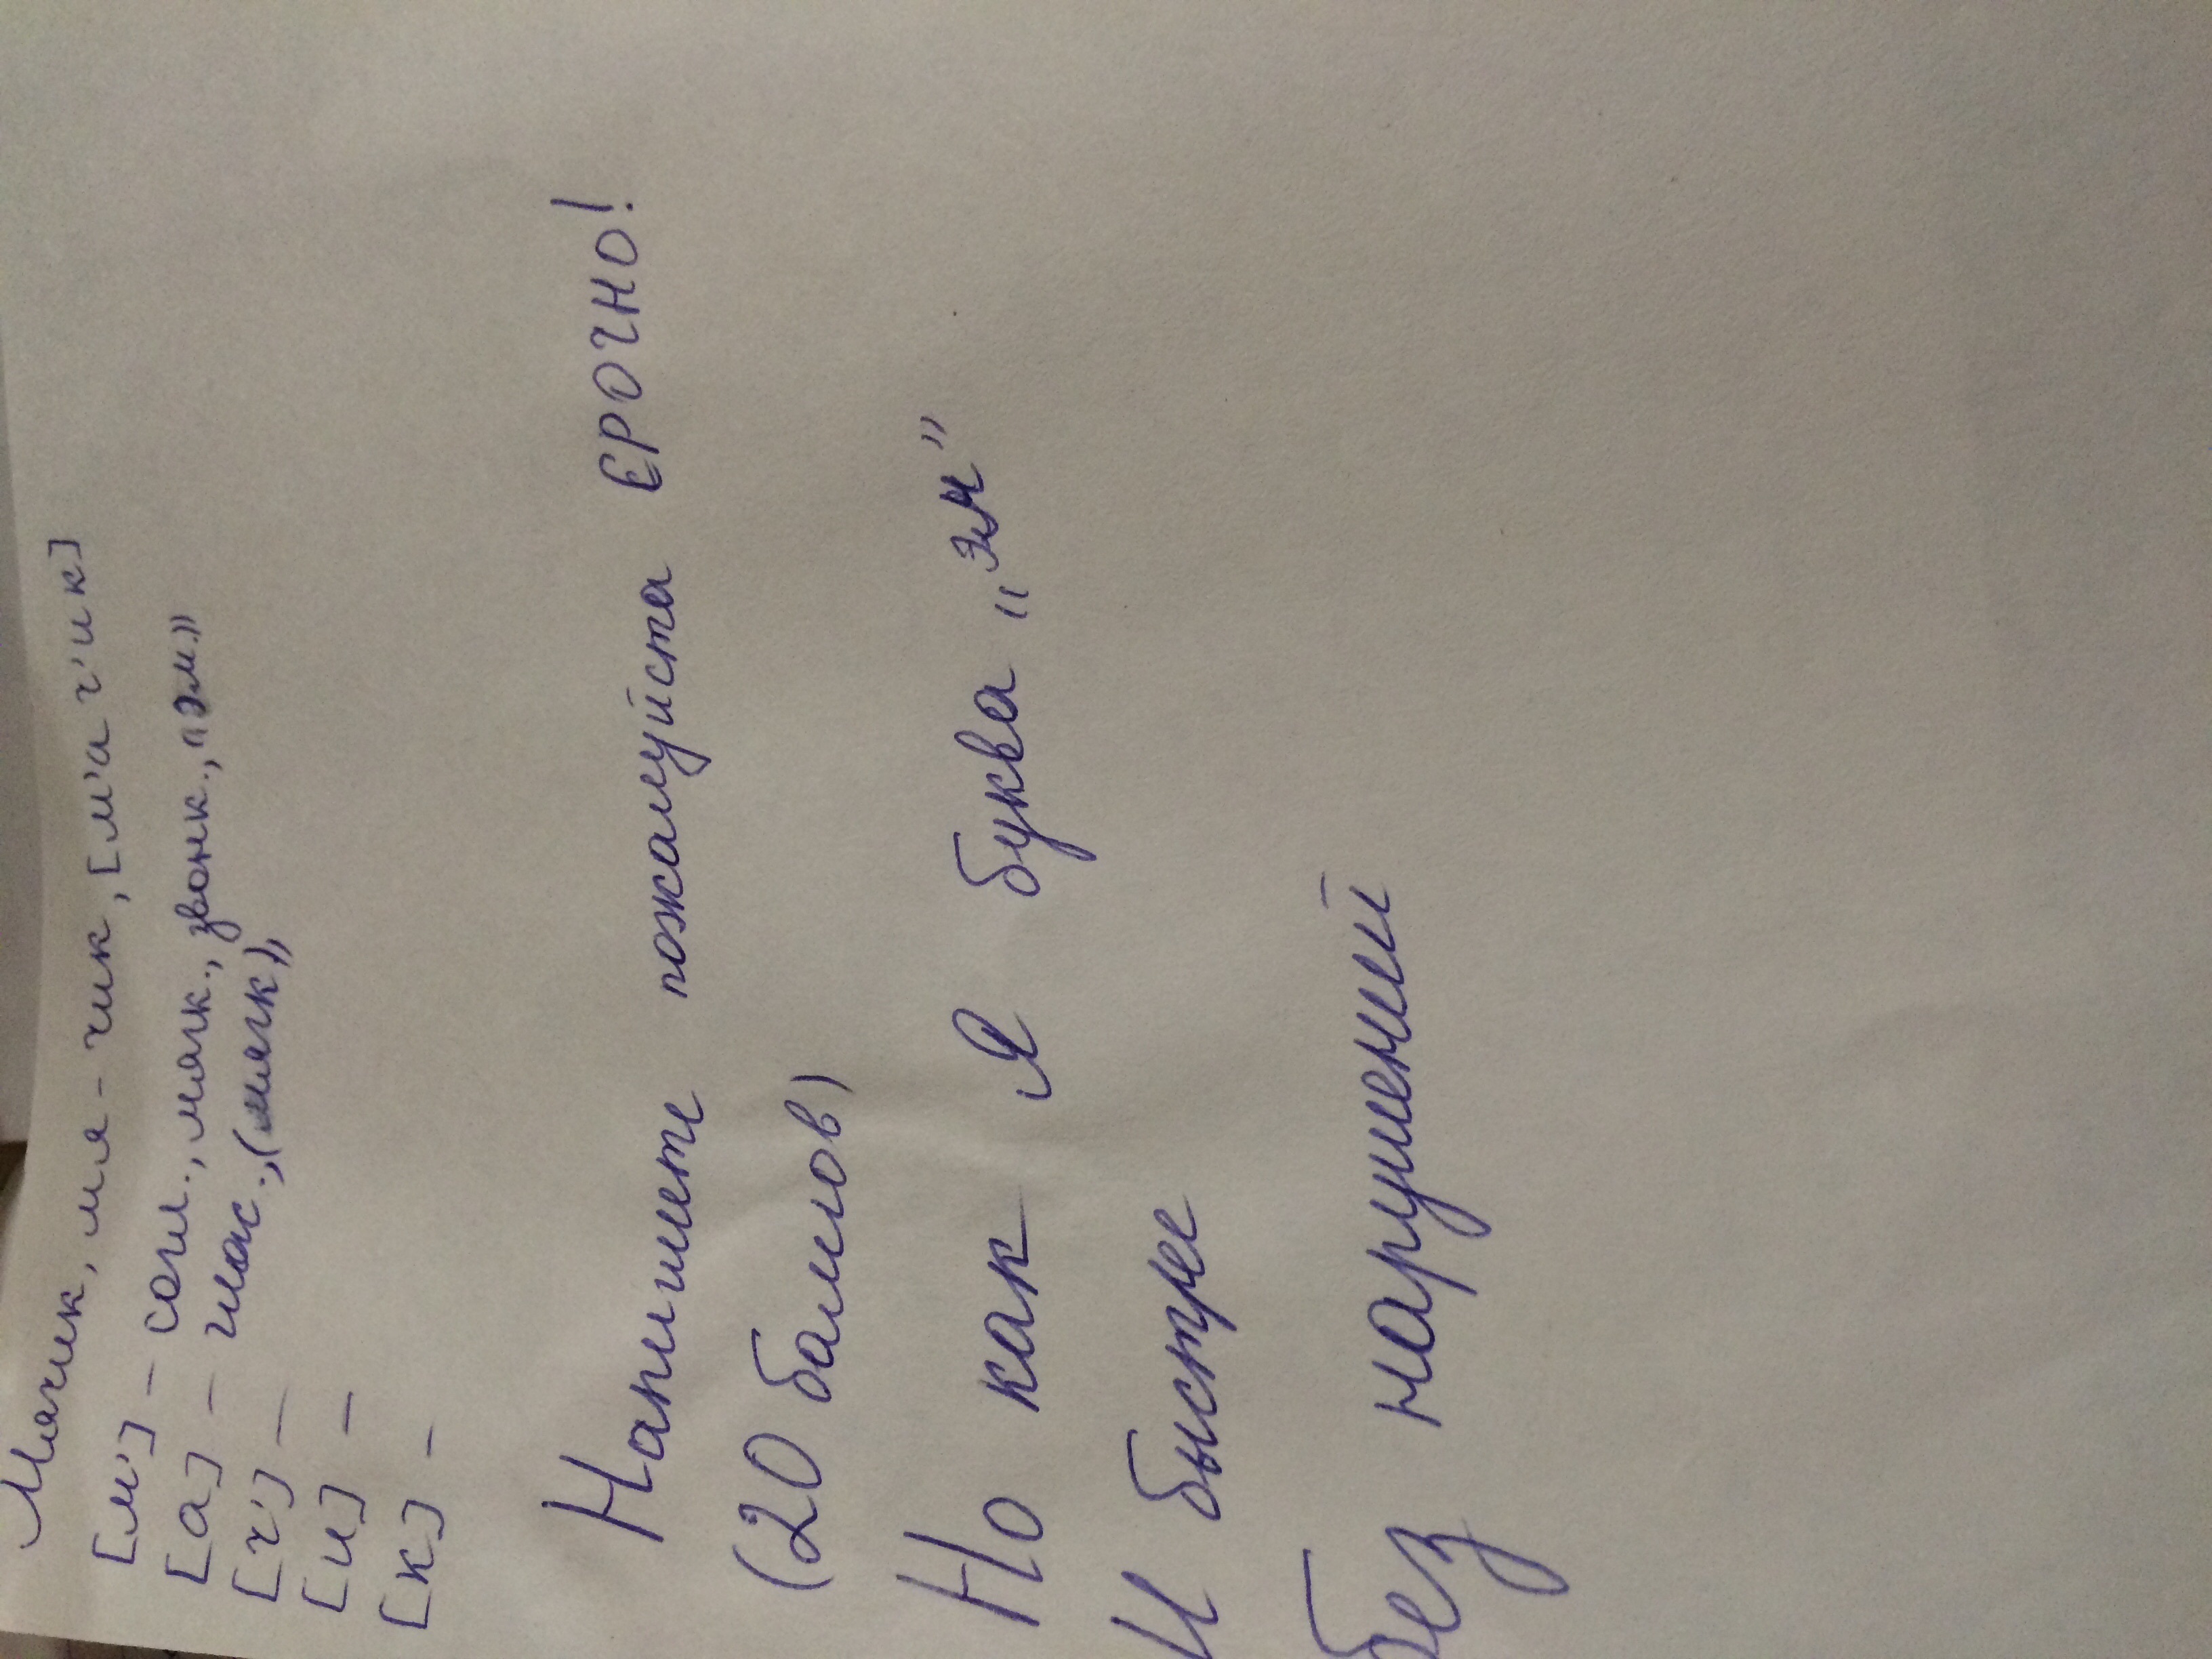 Мячик, мя-чик, [м'а ч'ик]
[м'] – согл., мягк., звонк., "эм"
[а] – глас., (мягк),
[ч'] –
[и] –
[к] –
Напишите пожалуйста СРОЧНО!
(20 баллов)
Но как я буква "эм"
И быстрее
Без нарушений